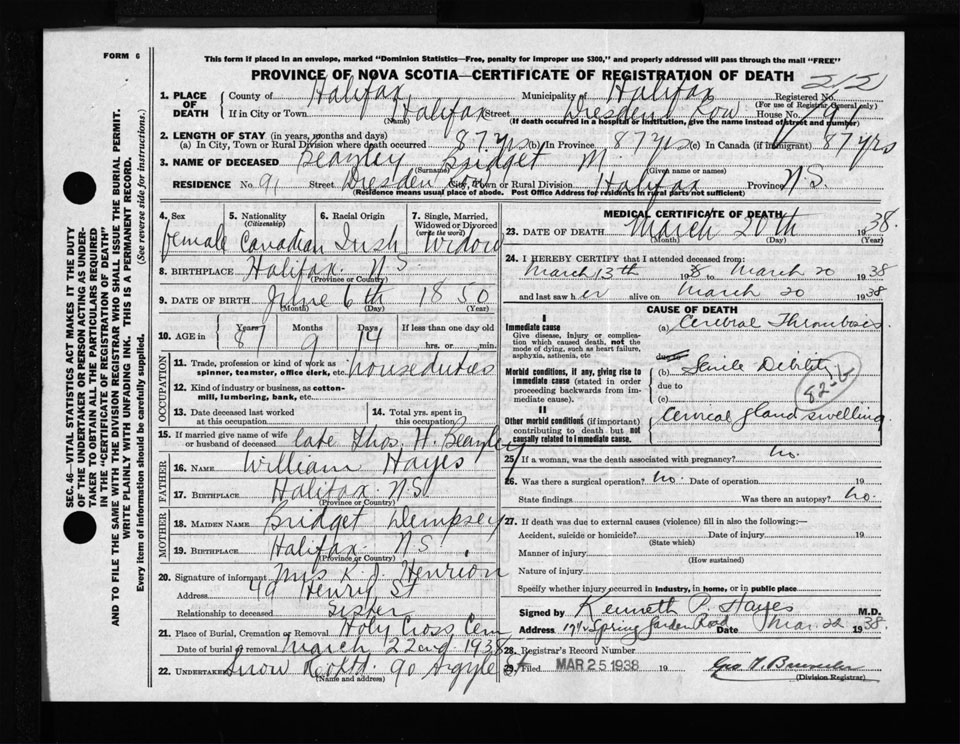 FORM 6
This form if placed in an envelope, marked "Dominion Statistics—Free, penalty for improper use $300," and properly addressed will pass through the mail "FREE"
PROVINCE OF NOVA SCOTIA—CERTIFICATE OF REGISTRATION OF DEATH
SEC. 46—VITAL STATISTICS ACT MAKES IT THE DUTY
OF THE UNDERTAKER OR PERSON ACTING AS UNDER-
TAKER TO OBTAIN ALL THE PARTICULARS REQUIRED
IN THE "CERTIFICATE OF REGISTRATION OF DEATH"
AND TO FILE THE SAME WITH THE DIVISION REGISTRAR WHO SHALL ISSUE THE BURIAL PERMIT.
WRITE PLAINLY WITH UNFADING INK. THIS IS A PERMANENT RECORD.
Every item of information should be carefully supplied. (See reverse side for instructions.)
1. PLACE OF DEATH
County of Halifax Municipality of Halifax Registered No.
(For use of Registrar General only)
If in City or Town Halifax Street Dresden Row House No. 91
(Name) (If death occurred in a hospital or institution, give the name instead of street and number)
2. LENGTH OF STAY (in years, months and days)
(a) In City, Town or Rural Division where death occurred 87 yrs (b) In Province 87 yrs (c) In Canada (if immigrant) 87 yrs
3. NAME OF DECEASED Beazley Bridget M.
(Surname) (Given name or names)
RESIDENCE No. 91 Street Dresden Row City, Town or Rural Division Halifax Province N S.
(Residence means usual place of abode. Post Office Address for residents in rural parts not sufficient)
4. Sex
female
5. Nationality (Citizenship)
Canadian
6. Racial Origin
Irish
7. Single, Married, Widowed or Divorced (write the word)
Widow
8. BIRTHPLACE Halifax N S.
(Province or Country)
9. DATE OF BIRTH June 6th 1850
(Month) (Day) (Year)
10. AGE in Years Months Days If less than one day
87 9 14 hrs. or min.
OCCUPATION
11. Trade, profession or kind of work as
spinner, teamster, office clerk, etc. houseduties
12. Kind of industry or business, as cotton-
mill, lumbering, bank, etc.
13. Date deceased last worked
at this occupation
14. Total yrs. spent in
this occupation
15. If married give name of wife
or husband of deceased late Thos. H. Beazley
FATHER
16. NAME William Hayes
17. BIRTHPLACE Halifax N S.
(Province or Country)
MOTHER
18. MAIDEN NAME Bridget Dempsey
19. BIRTHPLACE Halifax N S.
(Province or Country)
20. Signature of informant Mrs K J. Henrion
Address 49 Henry St
Relationship to deceased Sister
21. Place of Burial, Cremation or Removal Holy Cross Cem
Date of burial or removal March 22nd 1938
22. UNDERTAKER Snow & Co Ltd. 90 Argyle St
(Name and address)
MEDICAL CERTIFICATE OF DEATH
23. DATE OF DEATH March 20th 1938.
(Month) (Day) (Year)
24. I HEREBY CERTIFY that I attended deceased from:
March 13th 1938 to March 20 1938
and last saw her alive on March 20 1938
CAUSE OF DEATH
I
Immediate cause
Give disease, injury or complica-
tion which caused death, not the
mode of dying, such as heart failure,
asphyxia, asthenia, etc
(a) Cerebral Thrombosis.
due to
Morbid conditions, if any, giving rise to
immediate cause (stated in order
proceeding backwards from im-
mediate cause).
(b) Senile Debility
due to
(c)
II
Other morbid conditions (if important)
contributing to death but not
causally related to immediate cause.
Cervical gland swelling
25. If a woman, was the death associated with pregnancy? no.
26. Was there a surgical operation? no. Date of operation 19
State findings Was there an autopsy? no.
27. If death was due to external causes (violence) fill in also the following:—
Accident, suicide or homicide? Date of injury 19
(State which)
Manner of injury
(How sustained)
Nature of injury
Specify whether injury occurred in industry, in home, or in public place
Signed by Kenneth P. Hayes M.D.
Address Spring Garden Road Date Mar. 22 1938.
28. Registrar's Record Number
29. Filed MAR 25 1938 19
(Division Registrar)